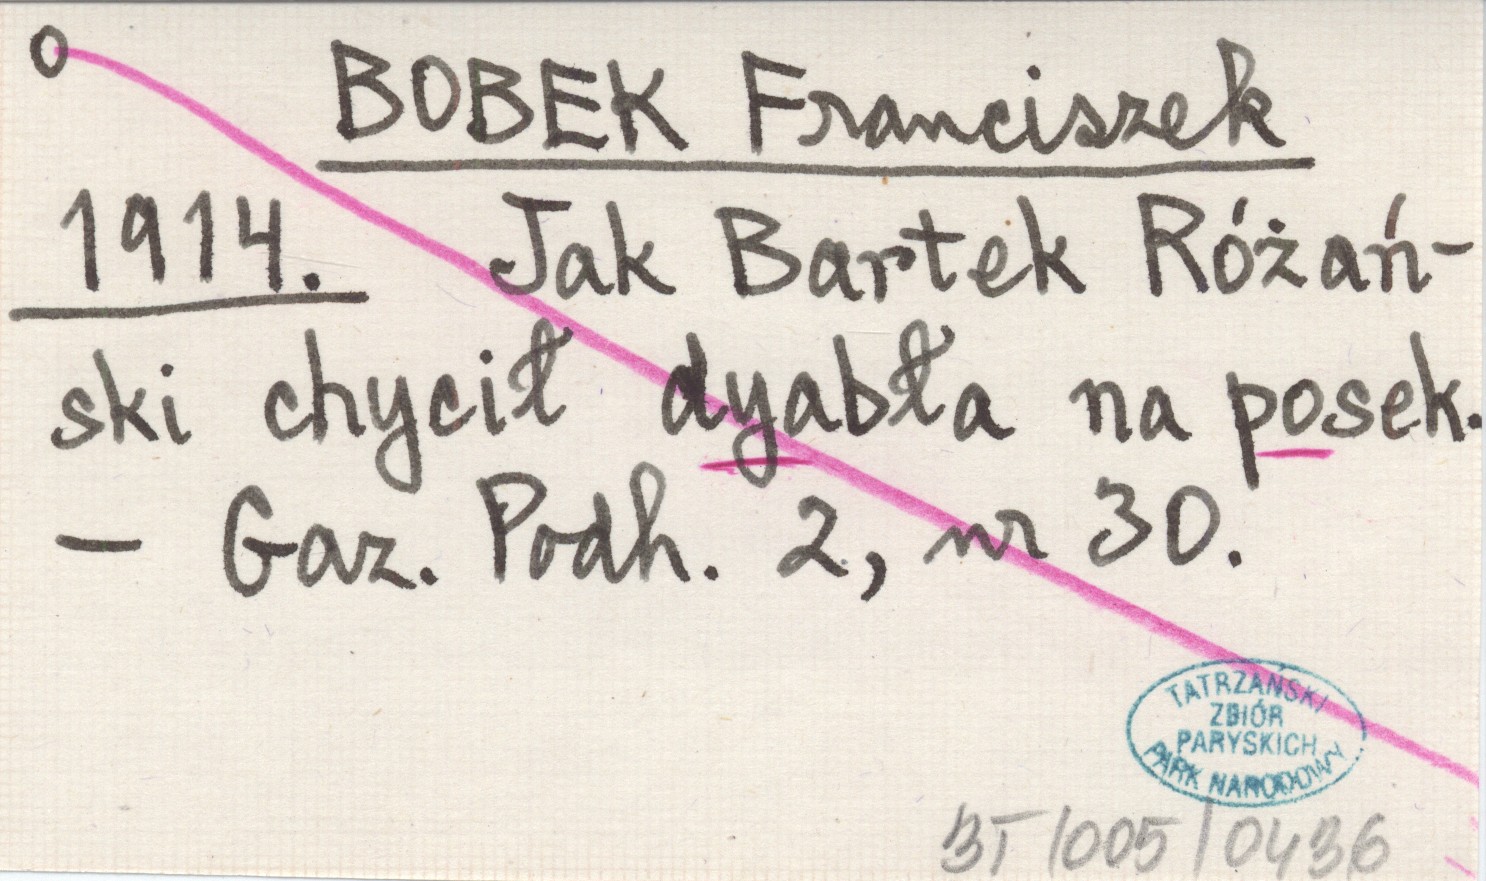 O
BOBEK Franciszek
1914. Jak Bartek Różań-
ski chycił dyabła na posek.
— Gaz. Podh. 2, nr 30.
TATRZAŃSKI
ZBIÓR
PARYSKICH
PARK NARODOWY
BT/005/0436